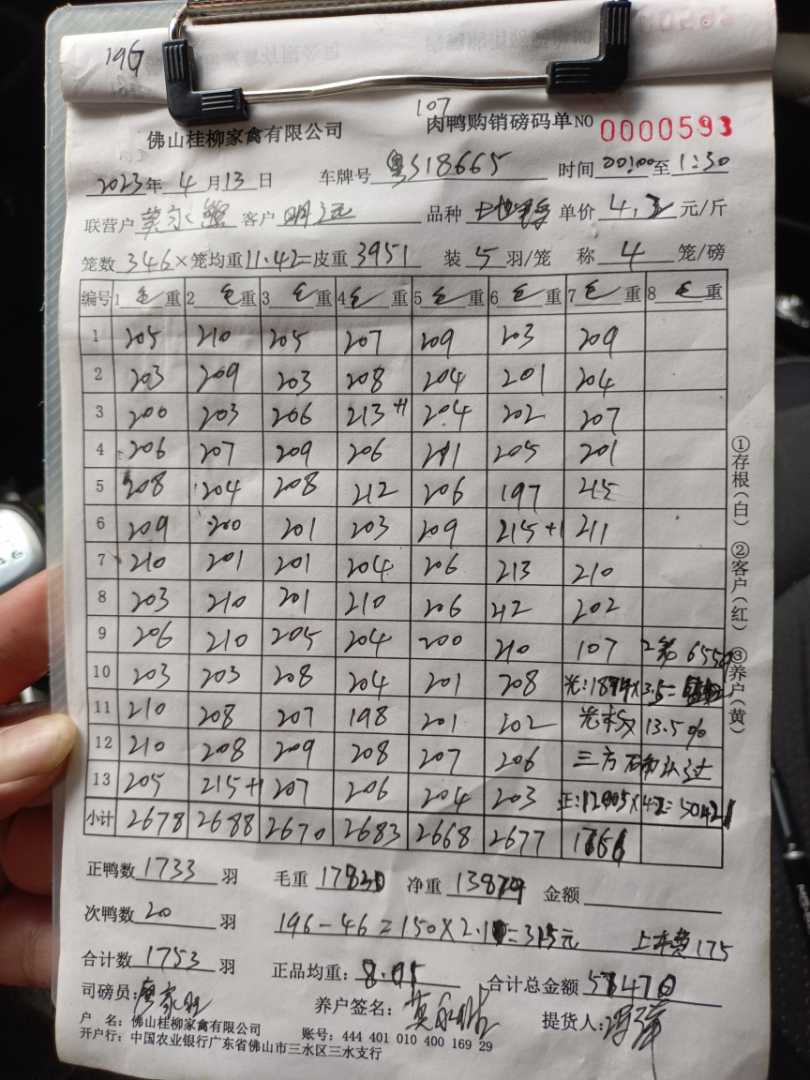 19G
107
佛山桂柳家禽有限公司 肉鸭购销磅码单NO 0000593
2023年4月13日 车牌号 粤S18665 时间00:00至1:30
联营户 客户 明记 品种 单价 4.2 元/斤
笼数 346×笼均重11.42=皮重 3951 装 5 羽/笼 称 4 笼/磅
编号 1 毛重 2 毛重 3 毛重 4 毛重 5 毛重 6 毛重 7 毛重 8 毛重
1 205 210 205 207 209 203 209
2 203 209 203 208 204 201 204
3 200 203 206 213+1 204 202 207
4 206 207 209 206 211 205 201
5 208 204 208 212 206 197 215
6 209 200 201 203 209 215+1 211
7 210 201 201 204 206 213 210
8 203 210 201 210 206 212 202
9 206 210 205 204 200 210 107 2笼
10 203 203 208 204 201 208
11 210 208 207 198 201 202 13.5%
12 210 208 209 208 207 206 三方
13 205 215+1 207 206 204 203 正:12005×4.2=50421
小计 2678 2688 2670 2683 2668 2677 1766
①存根(白) ②客户(红) ③养户(黄)
正鸭数 1733 羽 毛重 17830 净重 13879 金额
次鸭数 20 羽 196-46=150×2.10=315元 上车费175
合计数 1753 羽 正品均重: 8.01 合计总金额
司磅员: 养户签名: 提货人:
户 名: 佛山桂柳家禽有限公司 账号: 444 401 010 400 169 29
开户行: 中国农业银行广东省佛山市三水区三水支行